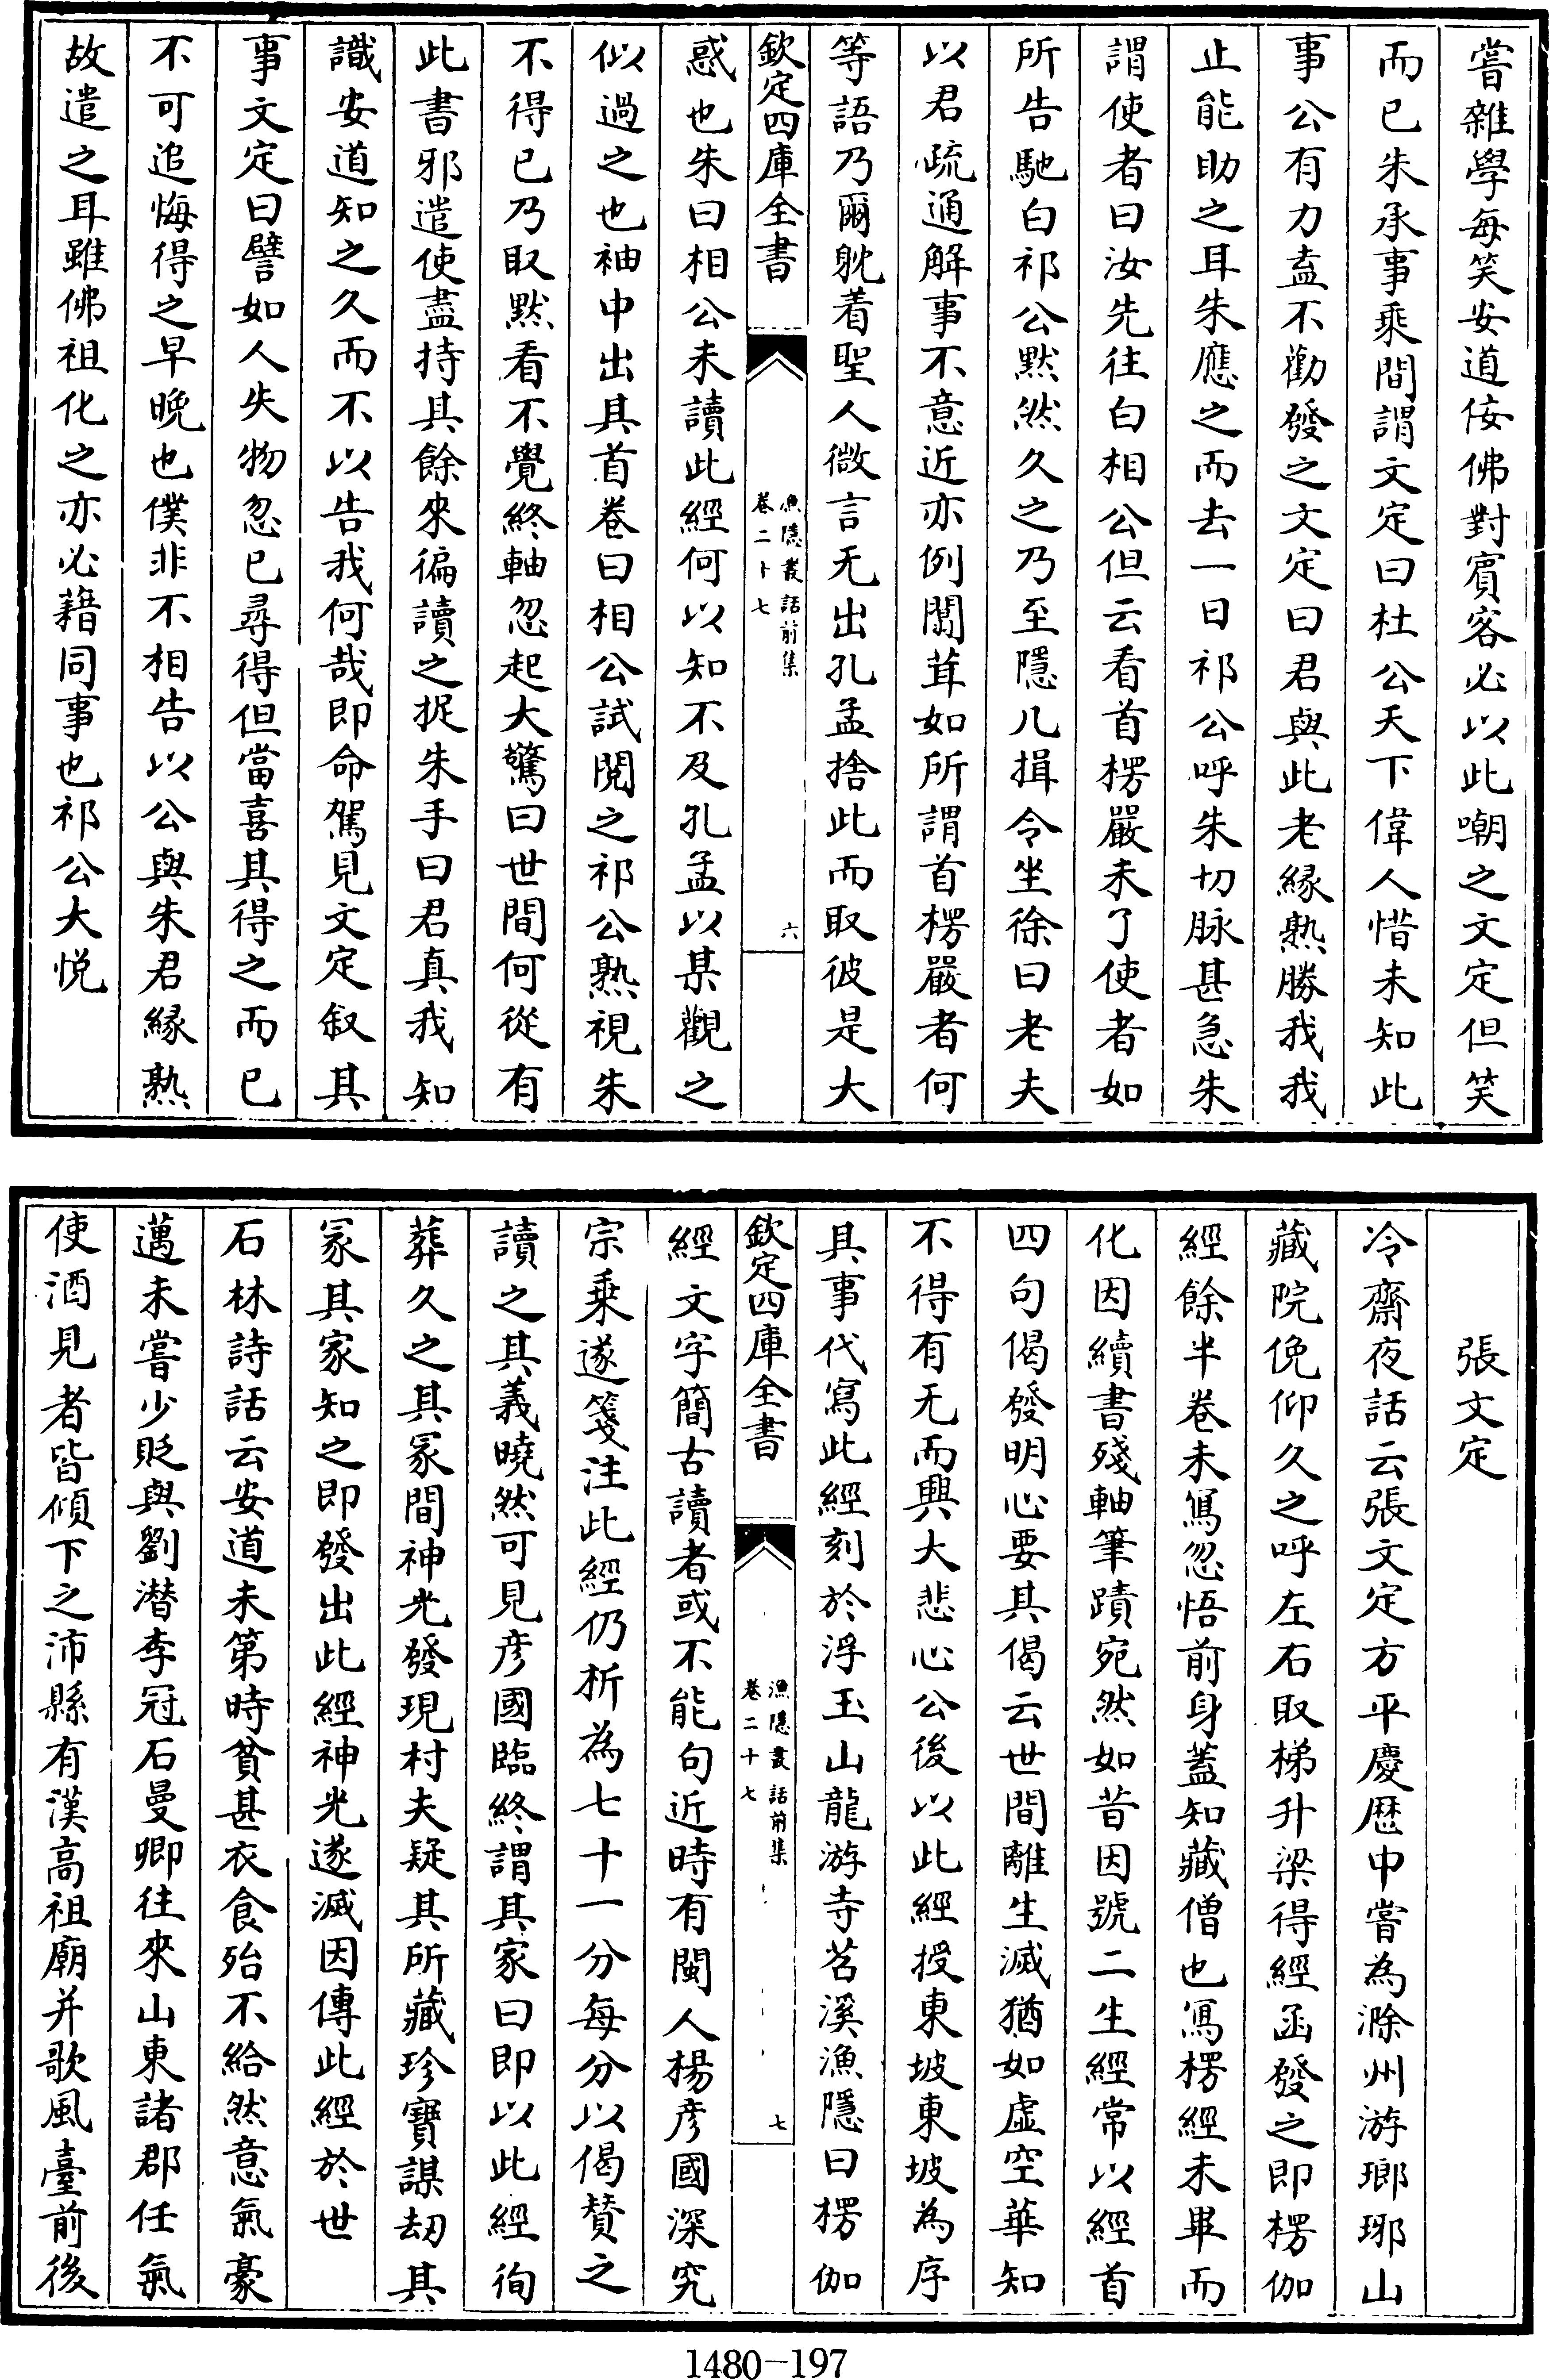 嘗雜學每笑安道佞佛對賓客必以此嘲之文定但笑
而已朱承事乘間謂文定曰杜公天下偉人惜未知此
事公有力盍不勸發之文定曰君與此老緣熟勝我我
止能助之耳朱應之而去一日祁公呼朱切脉甚急朱
謂使者曰汝先往白相公但云看首楞嚴未了使者如
所告馳白祁公黙然久之乃至隱几揖令坐徐曰老夫
以君疏通解事不意近亦例闒茸如所謂首楞嚴者何
等語乃爾躭着聖人微言无出孔孟捨此而取彼是大
欽定四庫全書
漁隱叢話前集
卷二十七
六
惑也朱曰相公未讀此經何以知不及孔孟以某觀之
似過之也袖中出其首卷曰相公試閱之祁公熟視朱
不得已乃取黙看不覺終軸忽起大驚曰世間何從有
此書邪遣使盡持其餘來徧讀之捉朱手曰君真我知
識安道知之久而不以告我何哉即命駕見文定叙其
事文定曰譬如人失物忽已尋得但當喜其得之而已
不可追悔得之早晚也僕非不相告以公與朱君緣熟
故遣之耳雖佛祖化之亦必藉同事也祁公大悦
張文定
冷齋夜話云張文定方平慶歴中嘗為滁州游瑯琊山
藏院俛仰久之呼左右取梯升梁得經函發之即楞伽
經餘半卷未寫忽悟前身蓋知藏僧也寫楞經未畢而
化因續書殘軸筆蹟宛然如昔因號二生經常以經首
四句偈發明心要其偈云世間離生滅猶如虛空華知
不得有无而興大悲心公後以此經授東坡東坡為序
其事代寫此經刻於浮玉山龍游寺苕溪漁隱曰楞伽
欽定四庫全書
漁隱叢話前集
卷二十七
七
經文字簡古讀者或不能句近時有閩人楊彦國深究
宗乘遂箋注此經仍析為七十一分每分以偈贊之
讀之其義曉然可見彦國臨終謂其家曰即以此經徇
葬久之其冢間神光發現村夫疑其所藏珍寶謀刼其
冢其家知之即發出此經神光遂滅因傳此經於世
石林詩話云安道未第時貧甚衣食殆不給然意氣豪
邁未嘗少貶與劉潛李冠石曼卿往來山東諸郡任氣
使酒見者皆傾下之沛縣有漢高祖廟并歌風臺前後
1480-197